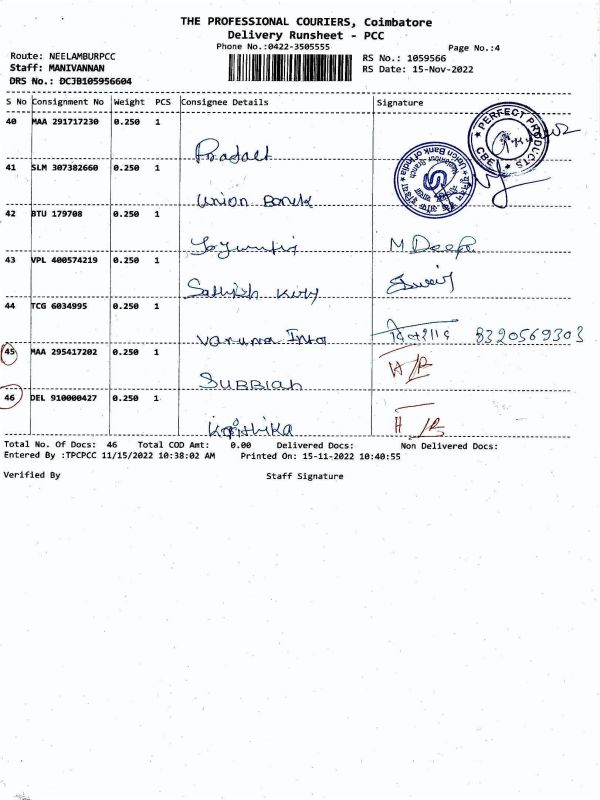 THE PROFESSIONAL COURIERS, Coimbatore
Delivery Runsheet - PCC
Phone No.:0422-3505555
Page No.:4
Route: NEELAMBURPCC
RS No.: 1059566
Staff: MANIVANNAN
RS Date: 15-Nov-2022
DRS No.: DCJB105956604
S No Consignment No Weight PCS Consignee Details Signature
40 MAA 291717230 0.250 1
PERFECT PRODUCTS CBE
Union Bank of India
Neelambur Branch
41 SLM 307382660 0.250 1
Union Bank
42 BTU 179708 0.250 1
M. Deepa
43 VPL 400574219 0.250 1
Sathish
44 TCG 6034995 0.250 1
Varuna Intra 8320569303
45 MAA 295417202 0.250 1
SUBBIAH H/R
46 DEL 910000427 0.250 1
H/R
Total No. Of Docs: 46 Total COD Amt: 0.00 Delivered Docs: Non Delivered Docs:
Entered By :TPCPCC 11/15/2022 10:38:02 AM Printed On: 15-11-2022 10:40:55
Verified By Staff Signature